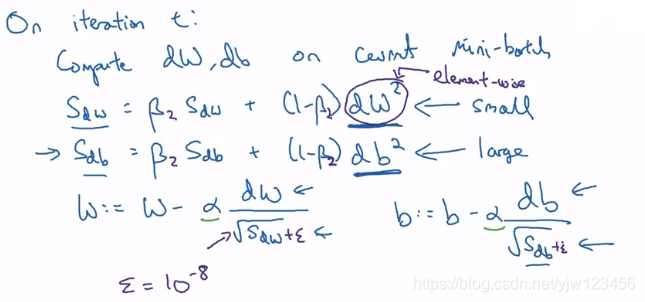 On iteration t:
Compute dW, db on current mini-batch
element-wise
S_dw = β₂ S_dw + (1-β₂) dW² ← small
→ S_db = β₂ S_db + (1-β₂) db² ← large
W := W - α dW / √S_dw + ε ← b := b - α db / √S_db + ε ←
ε = 10⁻⁸
https://blog.csdn.net/yjw123456